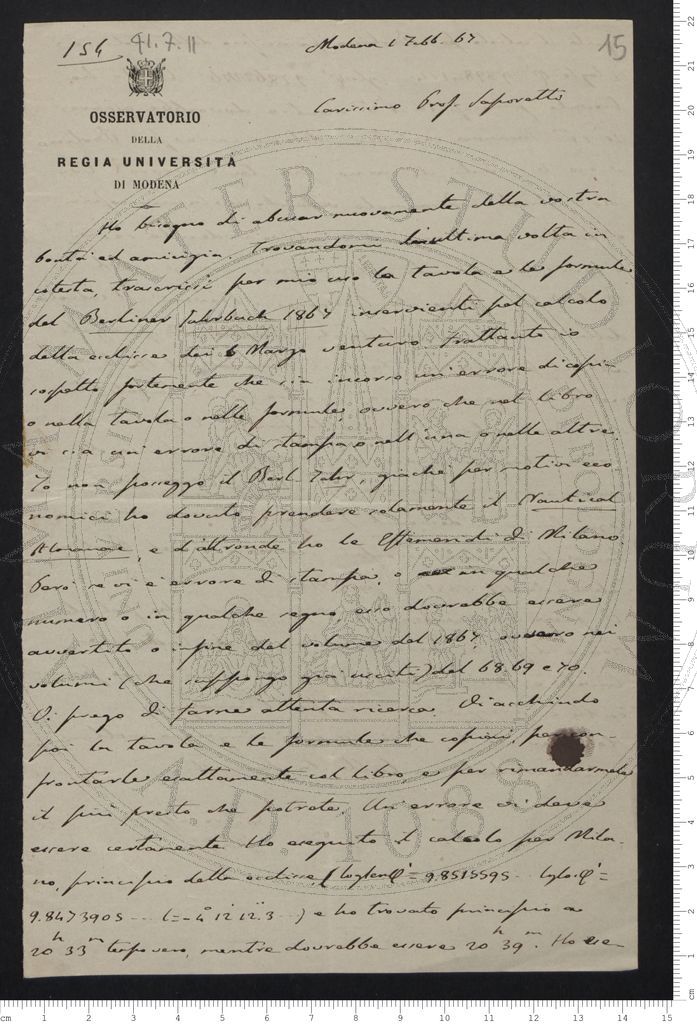 154 41.7.11
Modena 1 Febb. 67.
15
OSSERVATORIO
DELLA
REGIA UNIVERSITÀ
DI MODENA
Carissimo Prof. Saporetti
Ho bisogno di abusar nuovamente della vostra
bontà ed amicizia. Trovandomi l'ultima volta in
cotesta, trascrissi per mio uso la tavola e le formule
del Berliner Jahrbuch 1867 inservienti pel calcolo
della ecclisse dei 6 Marzo venturo. Frattanto io
sospetto fortemente che sia incorso un'errore di copia
o nella tavola o nelle formule, ovvero che nel libro
vi sia un'errore di stampa o nell'una o nelle altre.
Io non posseggo il Berl. Jahr., giachè per motivi eco
nomici ho dovuto prendere solamente il Nautical
Almanac, e d'altronde ho le Effemeridi di Milano.
Però se vi è errore di stampa, o in qualche
numero o in qualche segno, esso dovrebbe essere
avvertito o infine del volume del 1867, ovvero nei
volumi (che suppongo già usciti) del 68. 69 e 70.
Vi prego di farne attenta ricerca. Vi acchiudo
poi la tavola e le formule che copiai, per con-
frontarle esattamente col libro, e per rimandarmele
il più presto che potrete. Un'errore vi deve
essere certamente. Ho eseguito il calcolo per Mila-
no, principio della ecclisse, (log sen φ' = 9.8515595 -- log cos. φ' =
9.8473905 -- l = - 4° 12' 12".3 --) e ho trovato principio a
20h 33m tempo vero, mentre dovrebbe essere 20h 39m. Ho ese-